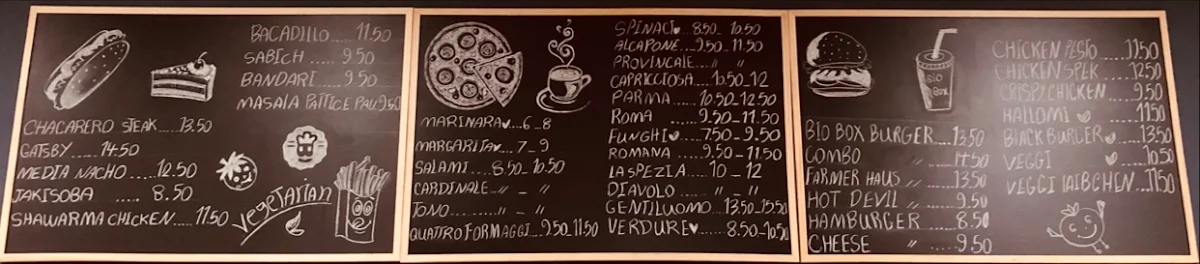 BACADILLO....11.50
SABICH.....9.50
BANDARI....9.50
MASALA PATTICE PAU.9.50
CHACARERO STEAK....13.50
GATSBY.....14.50
MEDIA NACHO....12.50
JAKISOBA ..... 8.50
SHAWARMA CHICKEN....11.50
vegetarian
MARINARA♥...6_8
MARGARITA♥...7_9
SALAMI....8.50_10.50
CARDINALE..〃 _ 〃
TONO........〃 _ 〃
QUATTRO FORMAGGI...9.50_11.50
SPINACI♥..8.50_10.50
ALCAPONE..9.50_11.50
PROVINCALE..〃 〃
CAPRICCIOSA...10.50_12
PARMA.....10.50_12.50
ROMA .....9.50_11.50
FUNGHI♥...7.50_9.50
ROMANA ....9.50_11.50
LA SPEZIA...10_12
DIAVOLO ....〃 _ 〃
GENTILUOMO..13.50_15.50
VERDURE♥.....8.50_10.50
BIO
BOX
BIO BOX BURGER...13.50
COMBO 〃 ....14.50
FARMER HAUS 〃 ....13.50
HOT DEVIL 〃 ....9.50
HAMBURGER ....8.50
CHEESE 〃 ....9.50
CHICKEN PESTO....11.50
CHICKEN SPEK....12.50
CRISPY CHICKEN....9.50
HALLOMI 11.50
BLACK BURGER 13.50
VEGGI 10.50
VEGGI LAIBCHEN..11.50